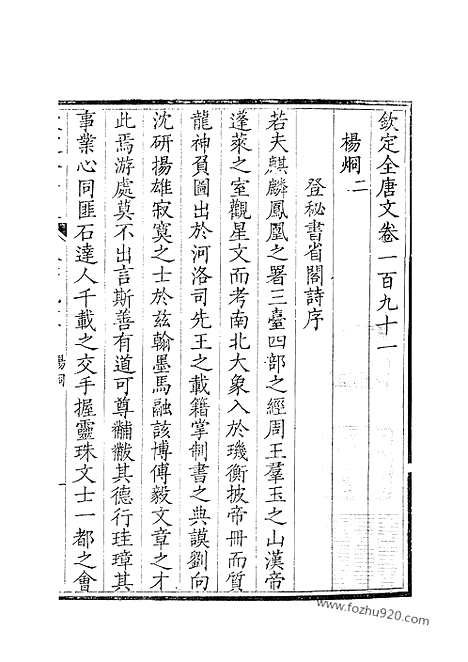 欽定全唐文卷一百九十一
楊炯二
登秘書省閣詩序
若夫麒麟鳳凰之署三臺四部之經周王羣玉之山漢帝
蓬萊之室觀星文而考南北大象入於璣衡披帝冊而質
龍神負圖出於河洛司先王之載籍掌制書之典謨劉向
沈研揚雄寂寞之士於兹翰墨馬融該博傅毅文章之才
此焉游處莫不出言斯善有道可尊黼黻其德行珪璋其
事業心同匪石達人千載之交手握靈珠文士一都之會
楊炯
一
www.fozhu920.com